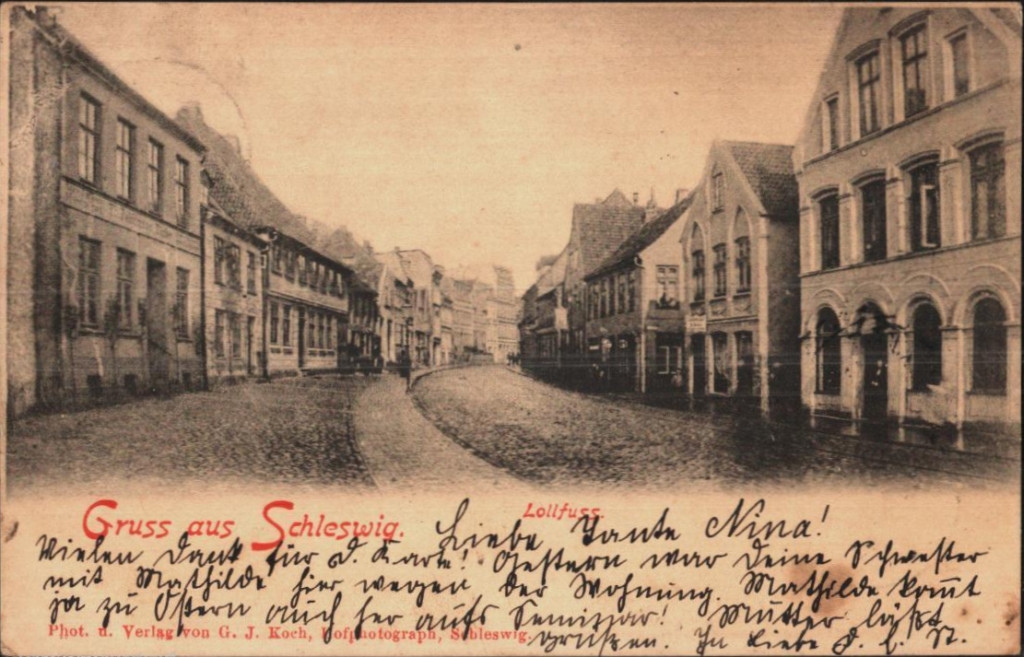 Gruss aus Schleswig.
Lollfuss.
Liebe Tante Nina!
Vielen Dank für d. Karte! Gestern war deine Schwester
mit Mathilde hier wegen der Wohnung. Mathilde kom̅t
ja zu Ostern auch her aufs Seminar! Mutter läßt
grüßen. In Liebe d. l. St.
Phot. u. Verlag von G. J. Koch, Hofphotograph, Schleswig.